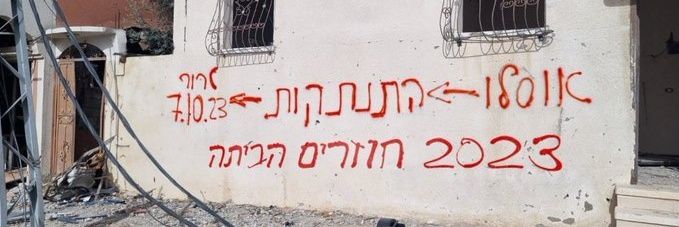 אוסלו ← התנתקות ← טרור
7.10.23
2023 חוזרים הביתה